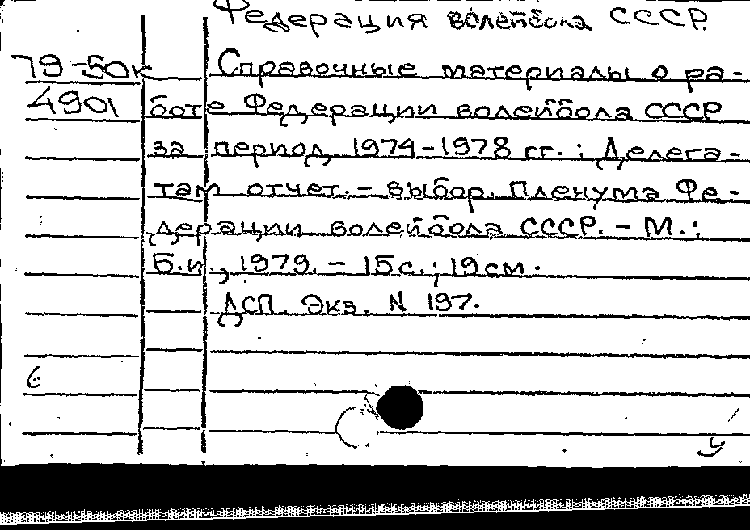 Федерация волейбола СССР.
79-50к Справочные материалы о ра-
4901 боте Федерации волейбола СССР
за период 1974-1978 гг.: Делега-
там отчет.- выбор. Пленума Фе-
дерации волейбола СССР. - М.:
Б.и., 1979. - 15 с.; 19 см.
ДСП. Экз. N 197.
6